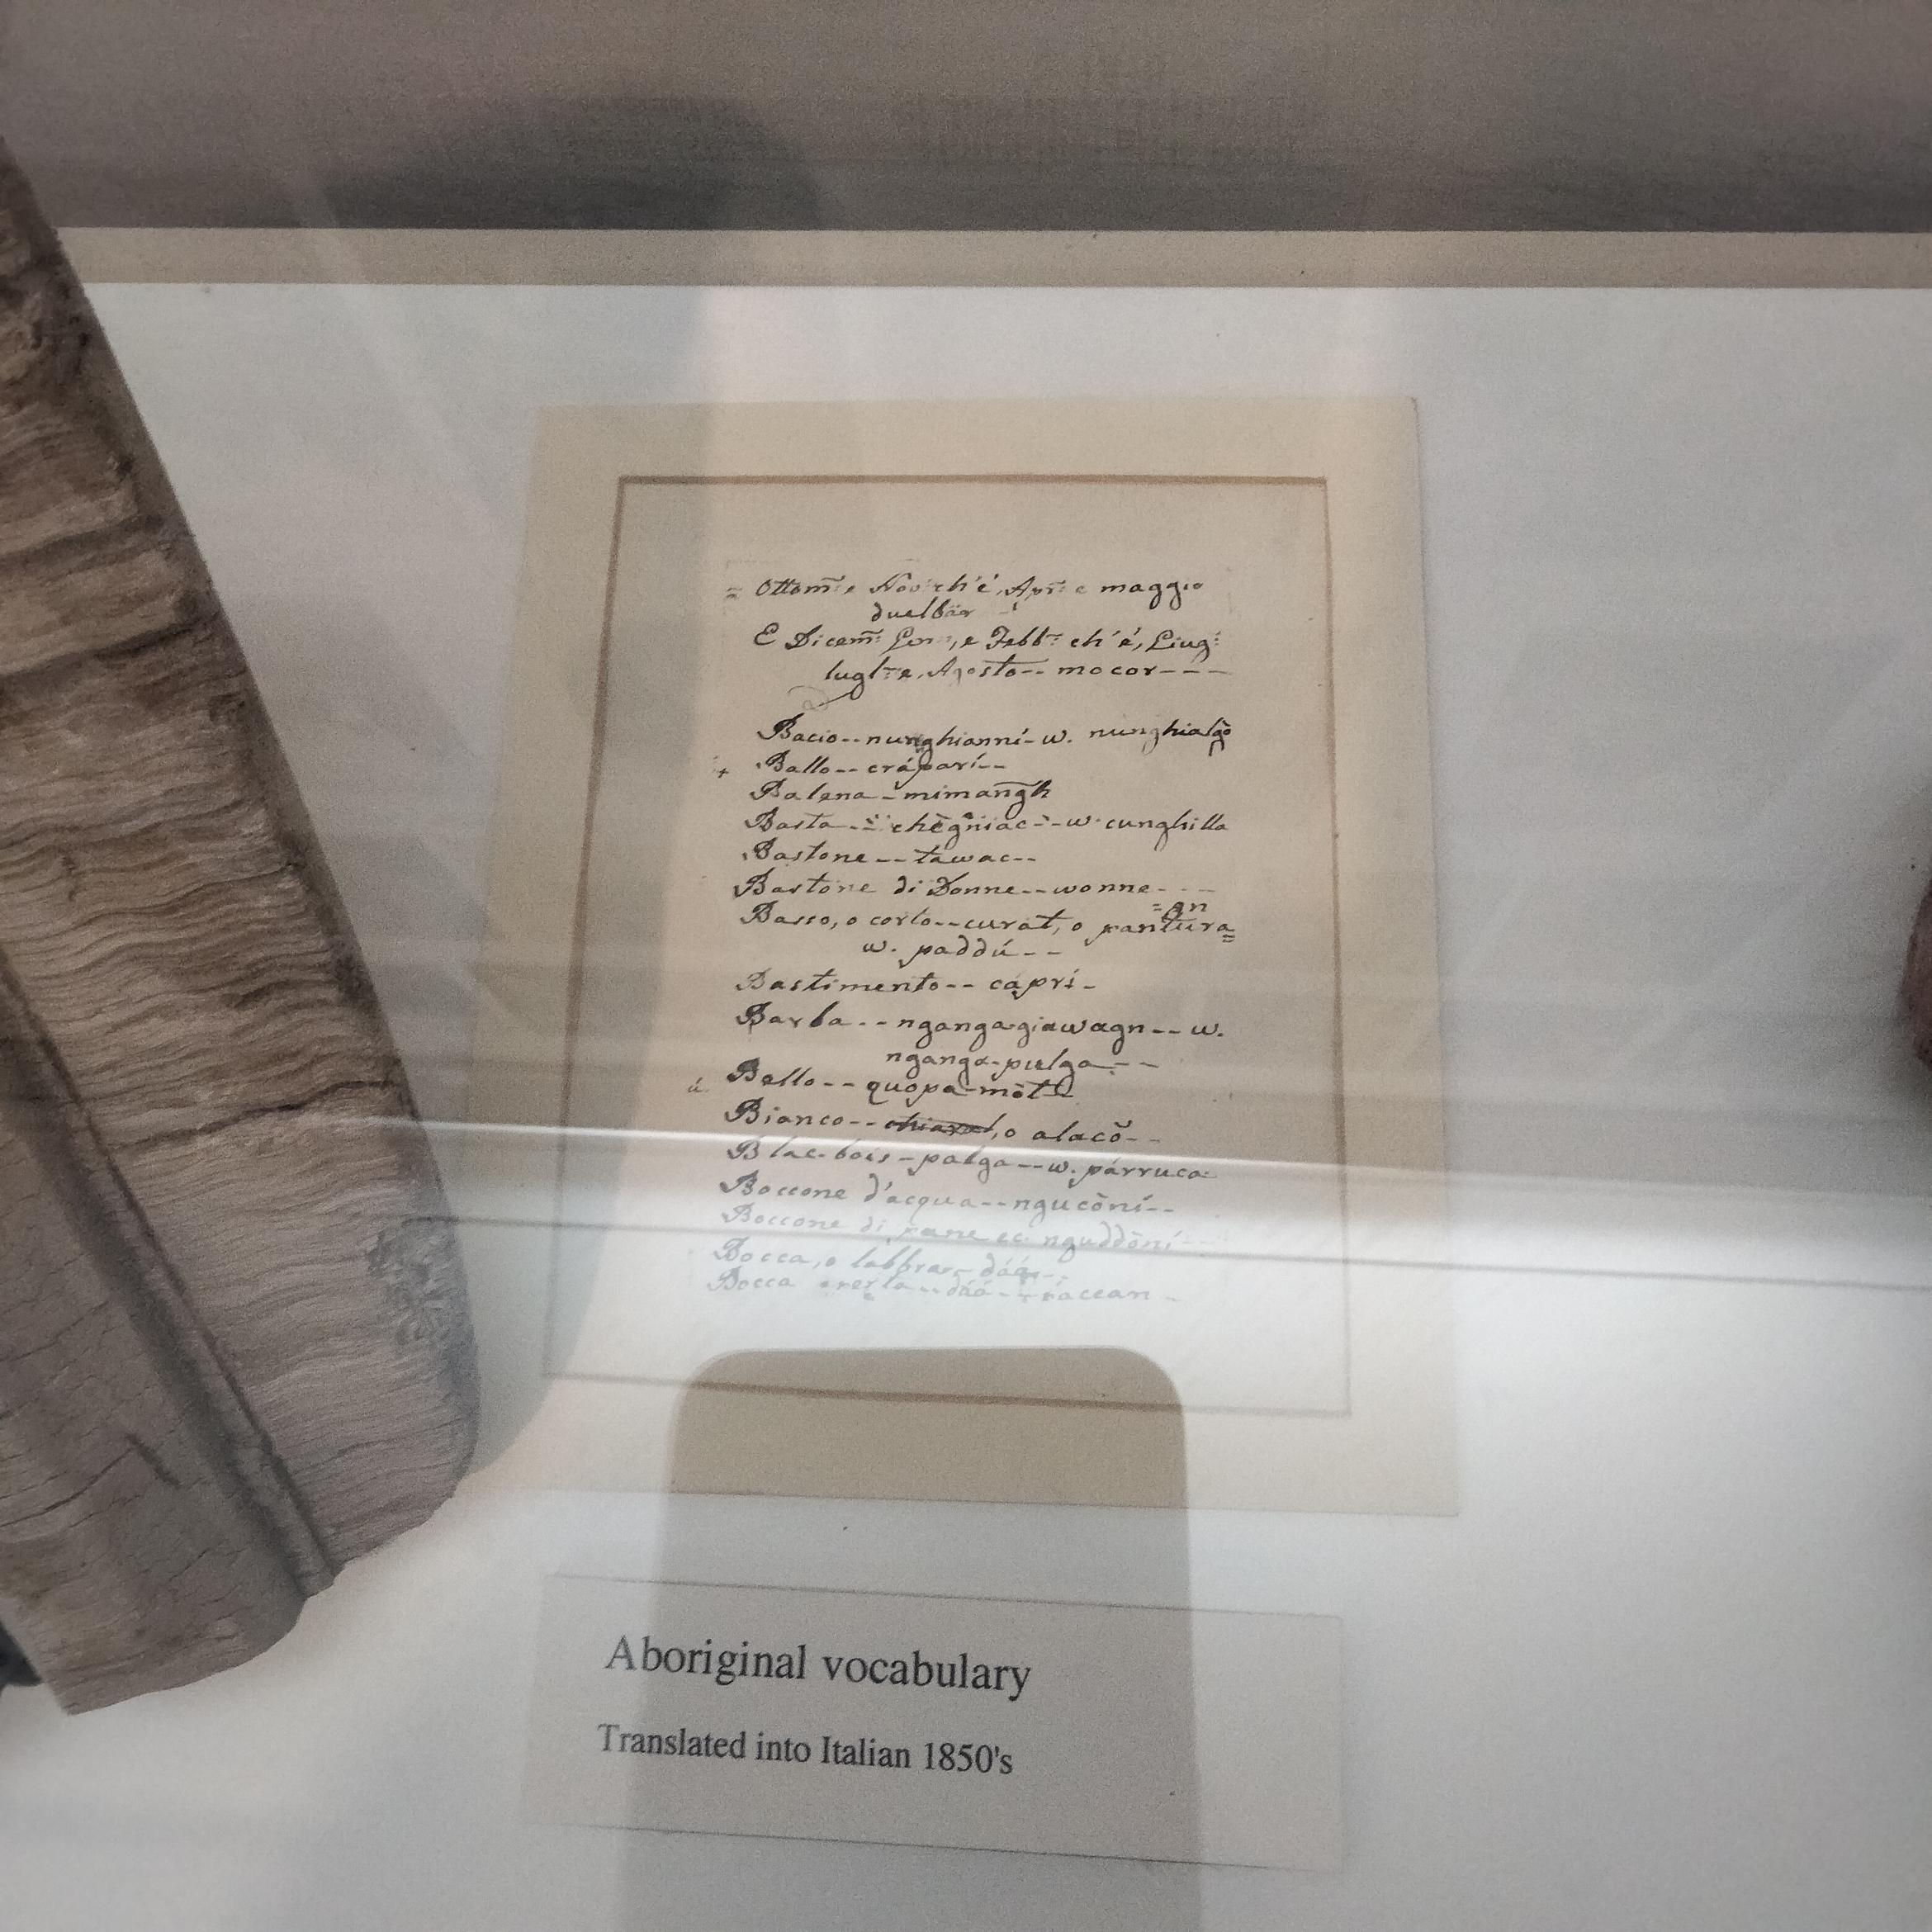 = Ottom̃: e Nov: ch'é, Apr: e maggio
duelbar
E Dicem̃: Genn, e Febb: ch'é, Giug:
lugl: e, Agosto-- mocor---
Bacio--nunghianní-w. nunghialgò
+ Ballo--cráparí--
Balena-mimangh
Basta-- chègniac--w. cunghilla
Bastone--tawac--
Bastone di Donne--wonne---
Basso, o corto--curat, o pantura=
=gn
w. paddú--
Bastimento--cáprí-
Barba--nganga-giawagn--w.
nganga-pulga--
Bello--quopa-mòt
Bianco-- o alacõ--
Blac-bois-palga--w. párruca
Boccone d'acqua--ngucõní--
Boccone di pane ec. nguddõní--
Bocca, o labbra--dáá--
Bocca aperta--dáá--raccan-
Aboriginal vocabulary
Translated into Italian 1850's